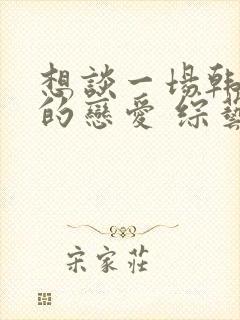 想談一場韓
的戀愛 綜藝
宋家莊